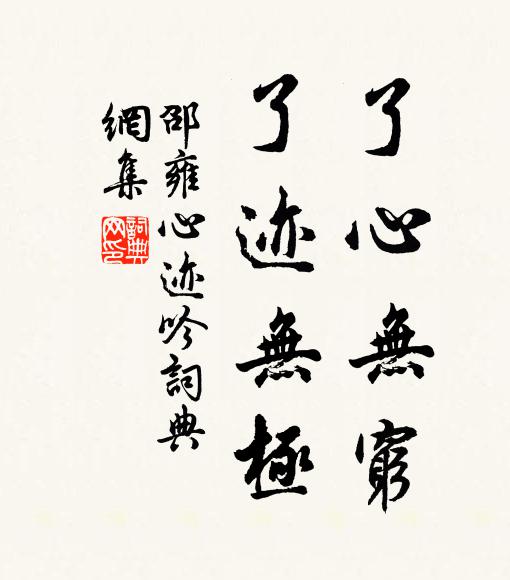 了心無窮
了迹無極
邵雍心迹吟詞典
網集
詞典網印